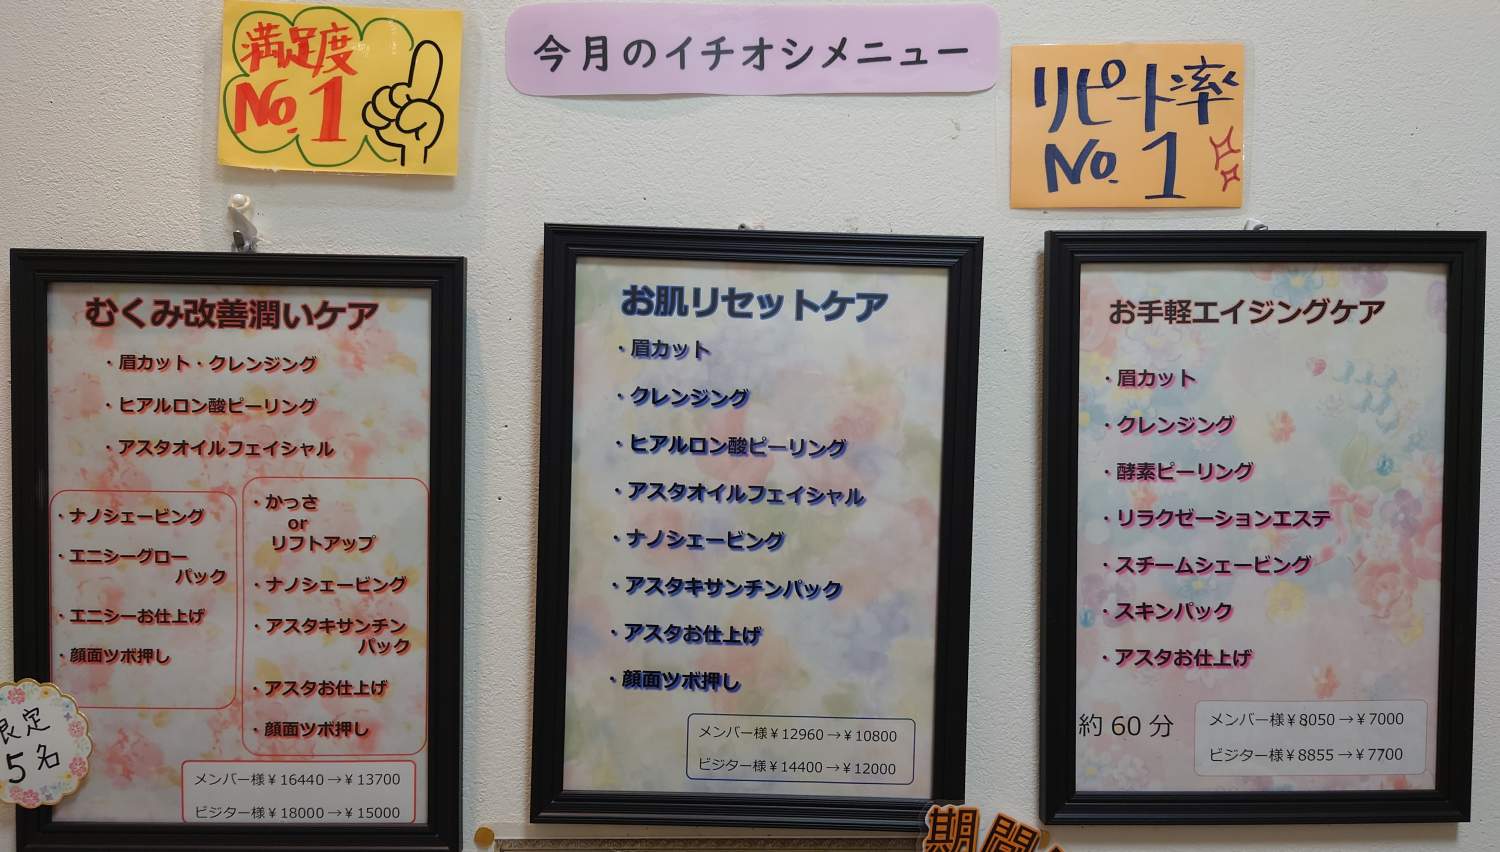 満足度
No.1
今月のイチオシメニュー
リピート率
No.1
むくみ改善潤いケア
・眉カット・クレンジング
・ヒアルロン酸ピーリング
・アスタオイルフェイシャル
・ナノシェービング
・エニシーグロー
パック
・エニシーお仕上げ
・顔面ツボ押し
・かっさ
or
リフトアップ
・ナノシェービング
・アスタキサンチン
パック
・アスタお仕上げ
・顔面ツボ押し
メンバー様¥16440→¥13700
ビジター様¥18000→¥15000
限定
5名
お肌リセットケア
・眉カット
・クレンジング
・ヒアルロン酸ピーリング
・アスタオイルフェイシャル
・ナノシェービング
・アスタキサンチンパック
・アスタお仕上げ
・顔面ツボ押し
メンバー様¥12960→¥10800
ビジター様¥14400→¥12000
お手軽エイジングケア
・眉カット
・クレンジング
・酵素ピーリング
・リラクゼーションエステ
・スチームシェービング
・スキンパック
・アスタお仕上げ
約60分
メンバー様¥8050→¥7000
ビジター様¥8855→¥7700
期間